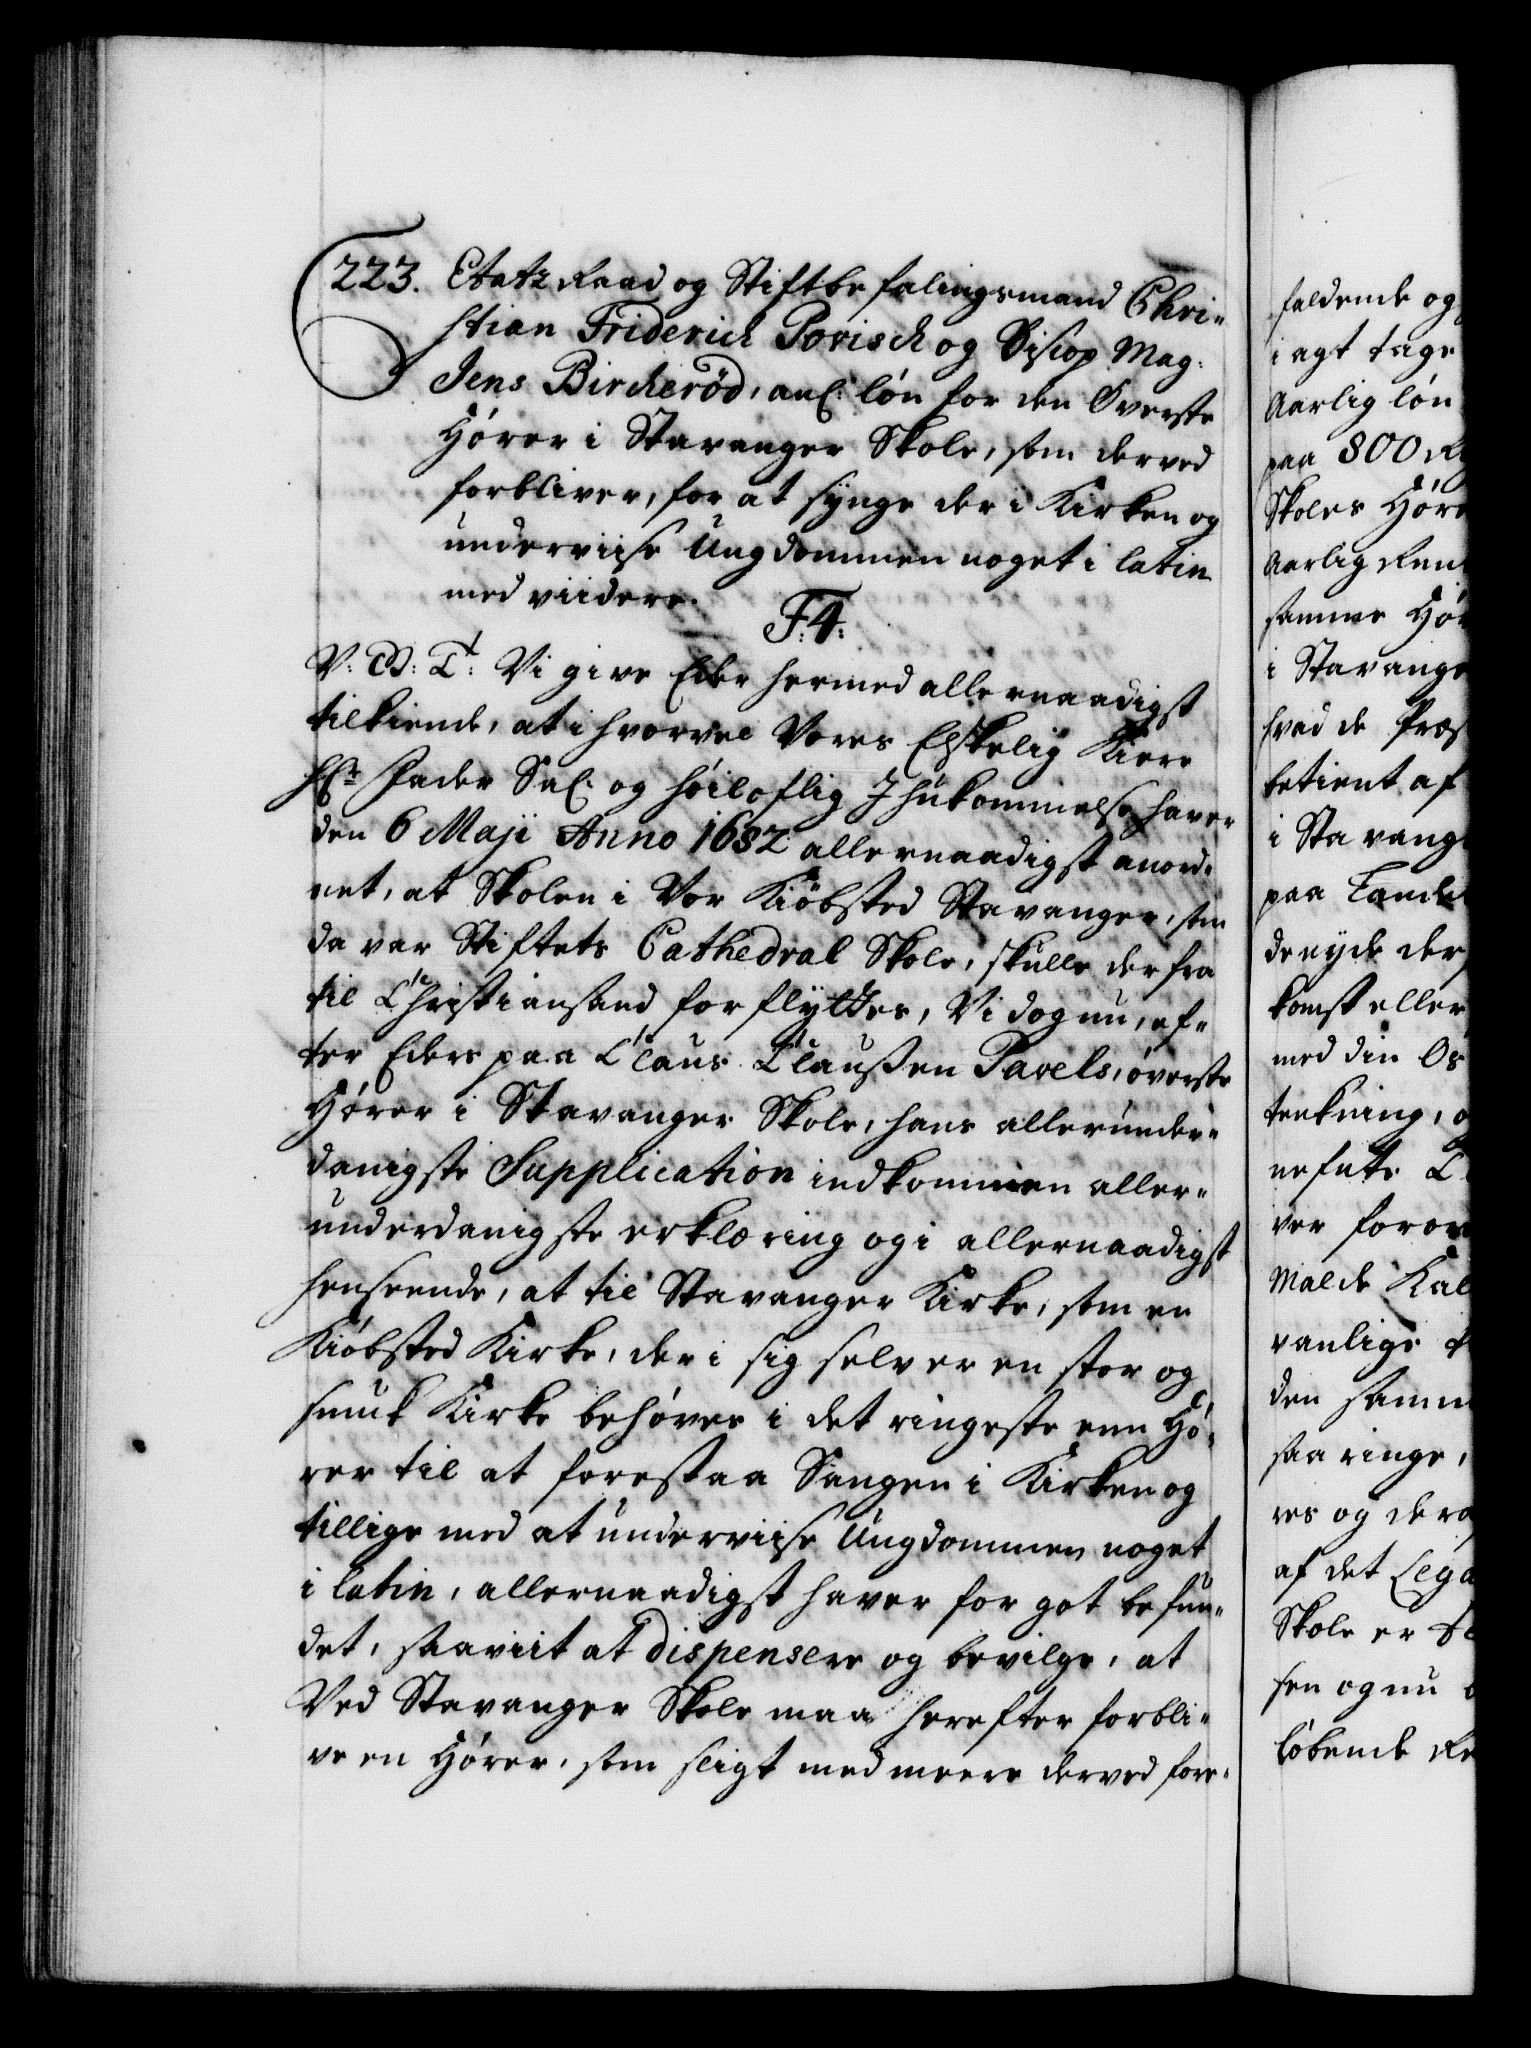 223. Etatz Raad og Stiftbefalingsmand Chri-
stian Friderich Povisch og Biscop Mag:
Jens Bircherød, anl: løn for den Øverste
Hører i Stavanger Skole, som derved
forbliver, for at synge der i Kirken og
underviise Ungdommen noget i latin
med viidere.
F:4:
V: G: T: Vi give Eder hermed allernaadigst
tilkiende, at ihvorvel Vores Elskelig Kiere
Hr Fader Sal: og høiloflig Ihukommelse haver
den 6 Maji Anno 1682 allernaadigst anord-
net, at Skolen i Vor Kiøbsted Stavanger, som
da var Stiftets Cathedral Skole, skulle derfra
til Christiansand forflyttes, Vi dog nu, ef-
ter Eders paa Claus Claussen Pavels, øverste
Hører i Stavanger Skole, hans allerunder-
danigste Supplication indkommen aller-
underdanigste erklæring og i allernaadigst
henseende, at til Stavanger Kirke, som en
Kiøbsted Kirke, der i sig selv er en stor og
smuk Kirke behøves i det ringeste enn Hø-
rer til at forestaa Sangen i Kirken og
tillige med at underviise Ungdommen noget
i latin, allernaadigst haver for got befun-
det, saaviit at dispensere og bevilge, at
Ved Stavanger Skole maa herefter forbli-
ve en Hører, som sligt med meere derved fore-
faldende og
i agt tage
Aarlig løn
paa 800 R
Skoles Høre
Aarlig Ren
samme Hø
i Stavange
hvad de Præs
betient af
i Stavang
paa Lande
de nyde der
komst eller
med din Os
tenkning, o
nefnte C
ver foror
Malde Kal
vanlige
den samm
saa ringe,
res og dero
af det Lega
Skole er
sen og nu
løbende Re